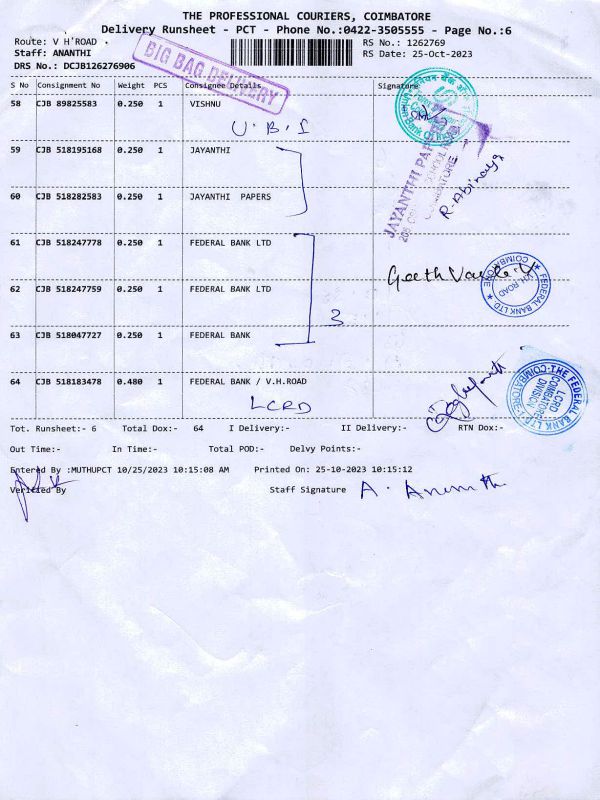 THE PROFESSIONAL COURIERS, COIMBATORE
Delivery Runsheet - PCT - Phone No.:0422-3505555 - Page No.:6
Route: V H'ROAD
RS No.: 1262769
Staff: ANANTHI
RS Date: 25-Oct-2023
DRS No.: DCJB126276906
BIG BAG DELIVERY
S No Consignment No Weight PCS Consignee Details Signature
58 CJB 89825583 0.250 1 VISHNU
U.B.I
59 CJB 518195168 0.250 1 JAYANTHI
JAYANTHI
COIMBATORE
R. Abinaya
60 CJB 518282583 0.250 1 JAYANTHI PAPERS
61 CJB 518247778 0.250 1 FEDERAL BANK LTD
FEDERAL BANK LTD. COIMBATORE
V.H. ROAD
62 CJB 518247759 0.250 1 FEDERAL BANK LTD
3
63 CJB 518047727 0.250 1 FEDERAL BANK
64 CJB 518183478 0.480 1 FEDERAL BANK / V.H.ROAD
LCRD
THE FEDERAL BANK LTD. COIMBATORE
LCRD
COIMBATORE
DIVISION
Tot. Runsheet:- 6 Total Dox:- 64 I Delivery:- II Delivery:- RTN Dox:-
Out Time:- In Time:- Total POD:- Delvy Points:-
Entered By :MUTHUPCT 10/25/2023 10:15:08 AM Printed On: 25-10-2023 10:15:12
Verified By Staff Signature A. Ananthi